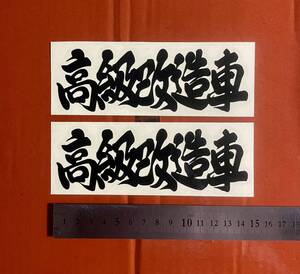 高級改造車
高級改造車
1 2 3 4 5 6 7 8 9 10 11 12 13 14 15 16 17 18